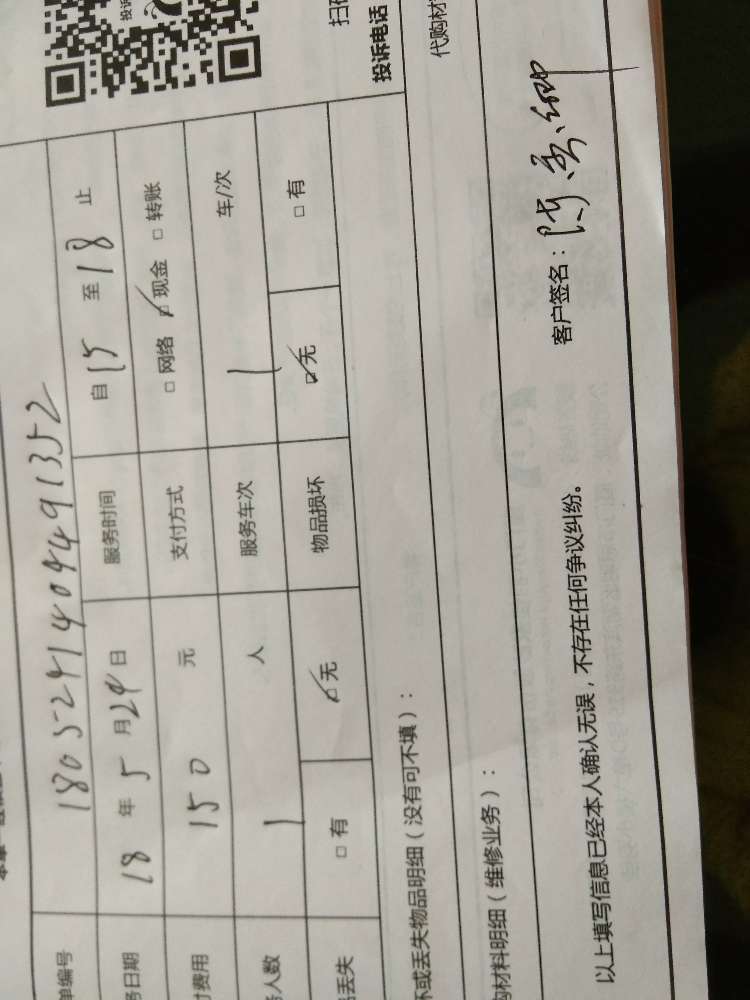 单编号 180524140949 1352
务日期 18 年 5 月 24 日 服务时间 自 15 至 18 止
付费用 150 元 支付方式 □ 网络 ☑ 现金 □ 转账
务人数 1 人 服务车次 1 车/次
品丢失 □ 有 ☑ 无 物品损坏 ☑ 无 □ 有
投诉电话
坏或丢失物品明细（没有可不填）：
代购材
购材料明细（维修业务）：
以上填写信息已经本人确认无误，不存在任何争议纠纷。 客户签名：